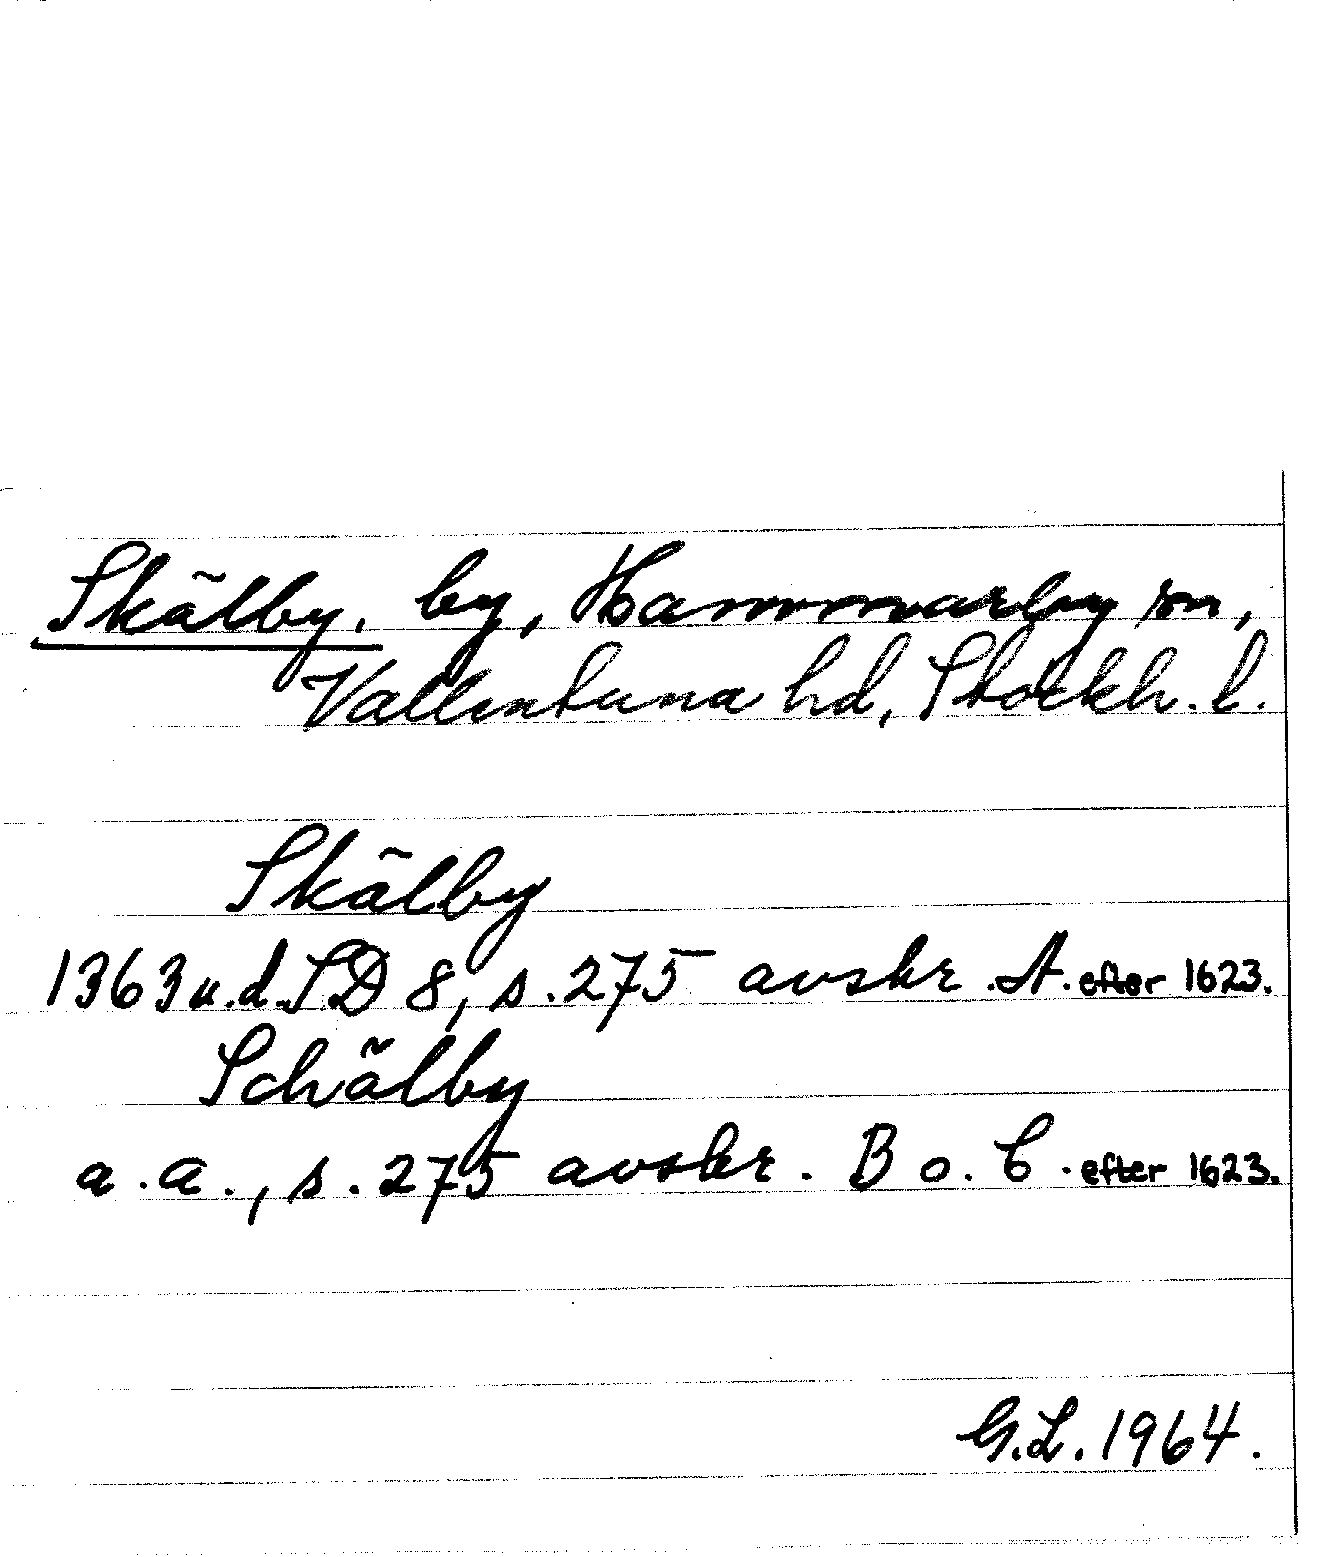 Skälby. by, Hammarby sn,
Vallentuna hd, Stockh. l.
Skälby
1363 u.d. SD 8, s. 275 avskr. A. efter 1623.
Schälby
a.a., s. 275 avskr. B o. C. efter 1623.
G.L. 1964.